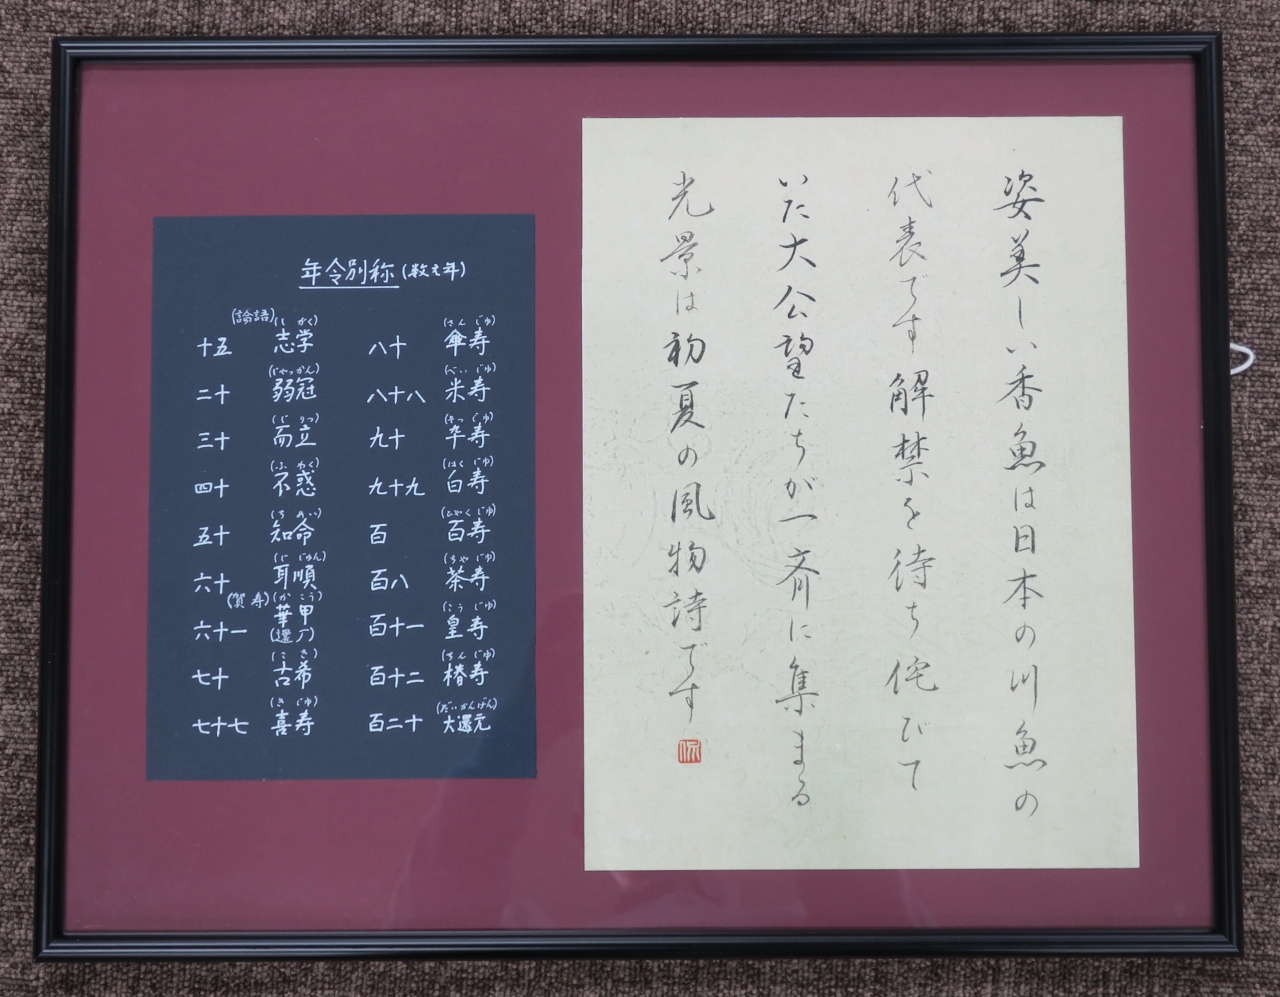 姿美しい香魚は日本の川魚の
代表です解禁を待ち侘びて
いた大公望たちが一斉に集まる
光景は初夏の風物詩です
年令別称(数え年)
(論語)
十五 志学(しがく)
二十 弱冠(じゃっかん)
三十 而立(じりつ)
四十 不惑(ふわく)
五十 知命(ちめい)
六十 耳順(じじゅん)
(賀寿)
六十一 華甲(かこう)(還暦)
七十 古希(こき)
七十七 喜寿(きじゅ)
八十 傘寿(さんじゅ)
八十八 米寿(べいじゅ)
九十 卒寿(そつじゅ)
九十九 白寿(はくじゅ)
百 百寿(ひゃくじゅ)
百八 茶寿(ちゃじゅ)
百十一 皇寿(こうじゅ)
百十二 椿寿(ちんじゅ)
百二十 大還元(だいかんげん)